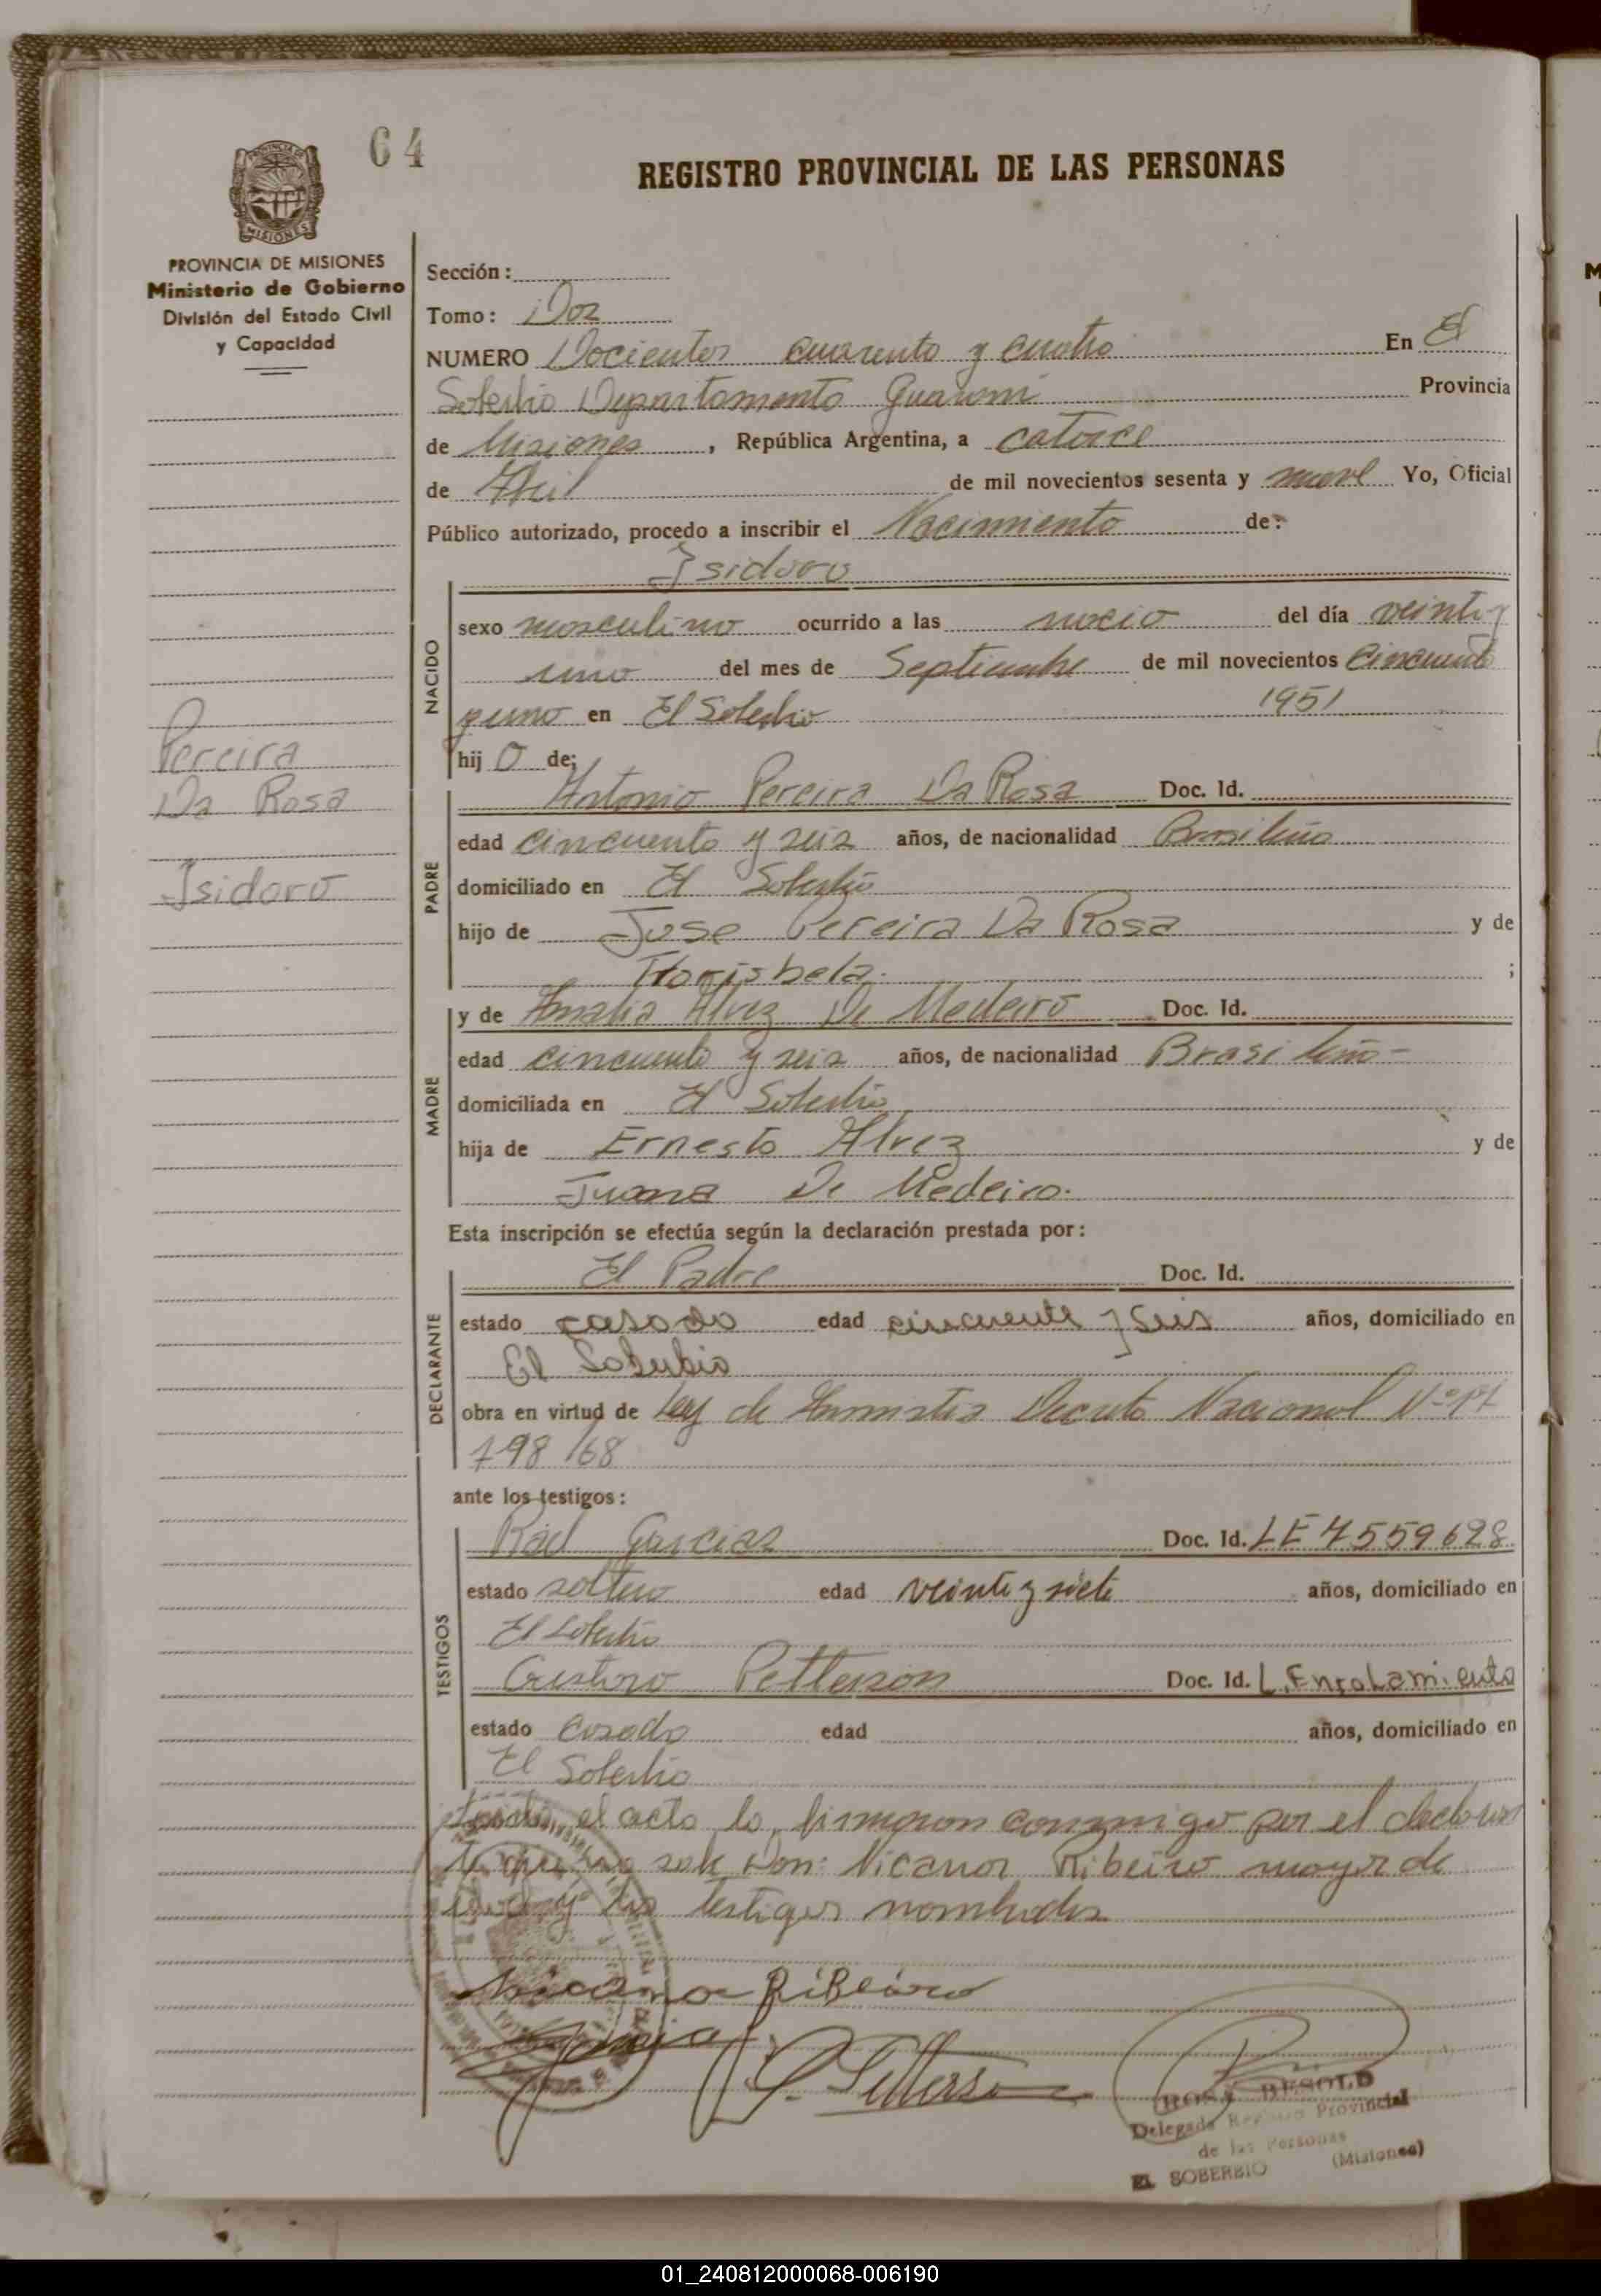 64
REGISTRO PROVINCIAL DE LAS PERSONAS
PROVINCIA DE MISIONES
Ministerio de Gobierno
División del Estado Civil
y Capacidad
Sección:
Tomo: Dos
NUMERO Docientos cuarenta y cuatro En El
Soberbio Departamento Guarani Provincia
de Misiones, República Argentina, a catorce
de Abril de mil novecientos sesenta y nueve Yo, Oficial
Público autorizado, procedo a inscribir el Nacimiento de:
Isidoro
NACIDO
sexo masculino ocurrido a las del día veinti y
uno del mes de Septiembre de mil novecientos cincuenta
y uno en El Soberbio 1951
hij o de;
Pereira
Da Rosa
Isidoro
PADRE
Antonio Pereira Da Rosa Doc. Id.
edad cincuenta y seis años, de nacionalidad Brasileña
domiciliado en El Soberbio
hijo de Jose Pereira Da Rosa y de
Florisbela. ;
MADRE
y de Amalia Alvez De Medeiro Doc. Id.
edad cincuenta y seis años, de nacionalidad Brasileña-
domiciliada en El Soberbio
hija de Ernesto Alvez y de
Juana De Medeiro.
Esta inscripción se efectúa según la declaración prestada por:
DECLARANTE
El Padre Doc. Id.
estado casado edad cincuenta y seis años, domiciliado en
El Soberbio
obra en virtud de Ley de Amnistia Decreto Nacional Nº 17
798/68
ante los testigos:
TESTIGOS
Garcias Doc. Id. LE 4559628
estado soltero edad veinte y siete años, domiciliado en
El Soberbio
Gustavo Petterson Doc. Id. L. Enrolamiento
estado casado edad años, domiciliado en
El Soberbio
el acto lo firmaron conmigo por el declaran
te que no sabe Don: Nicanor Ribeiro mayor de
edad y los testigos nombrados
Nicanor Ribeiro
G. Petterson
ROSA BESOLD
Delegada Registro Provincial
de las Personas
EL SOBERBIO (Misiones)
01_240812000068-006190